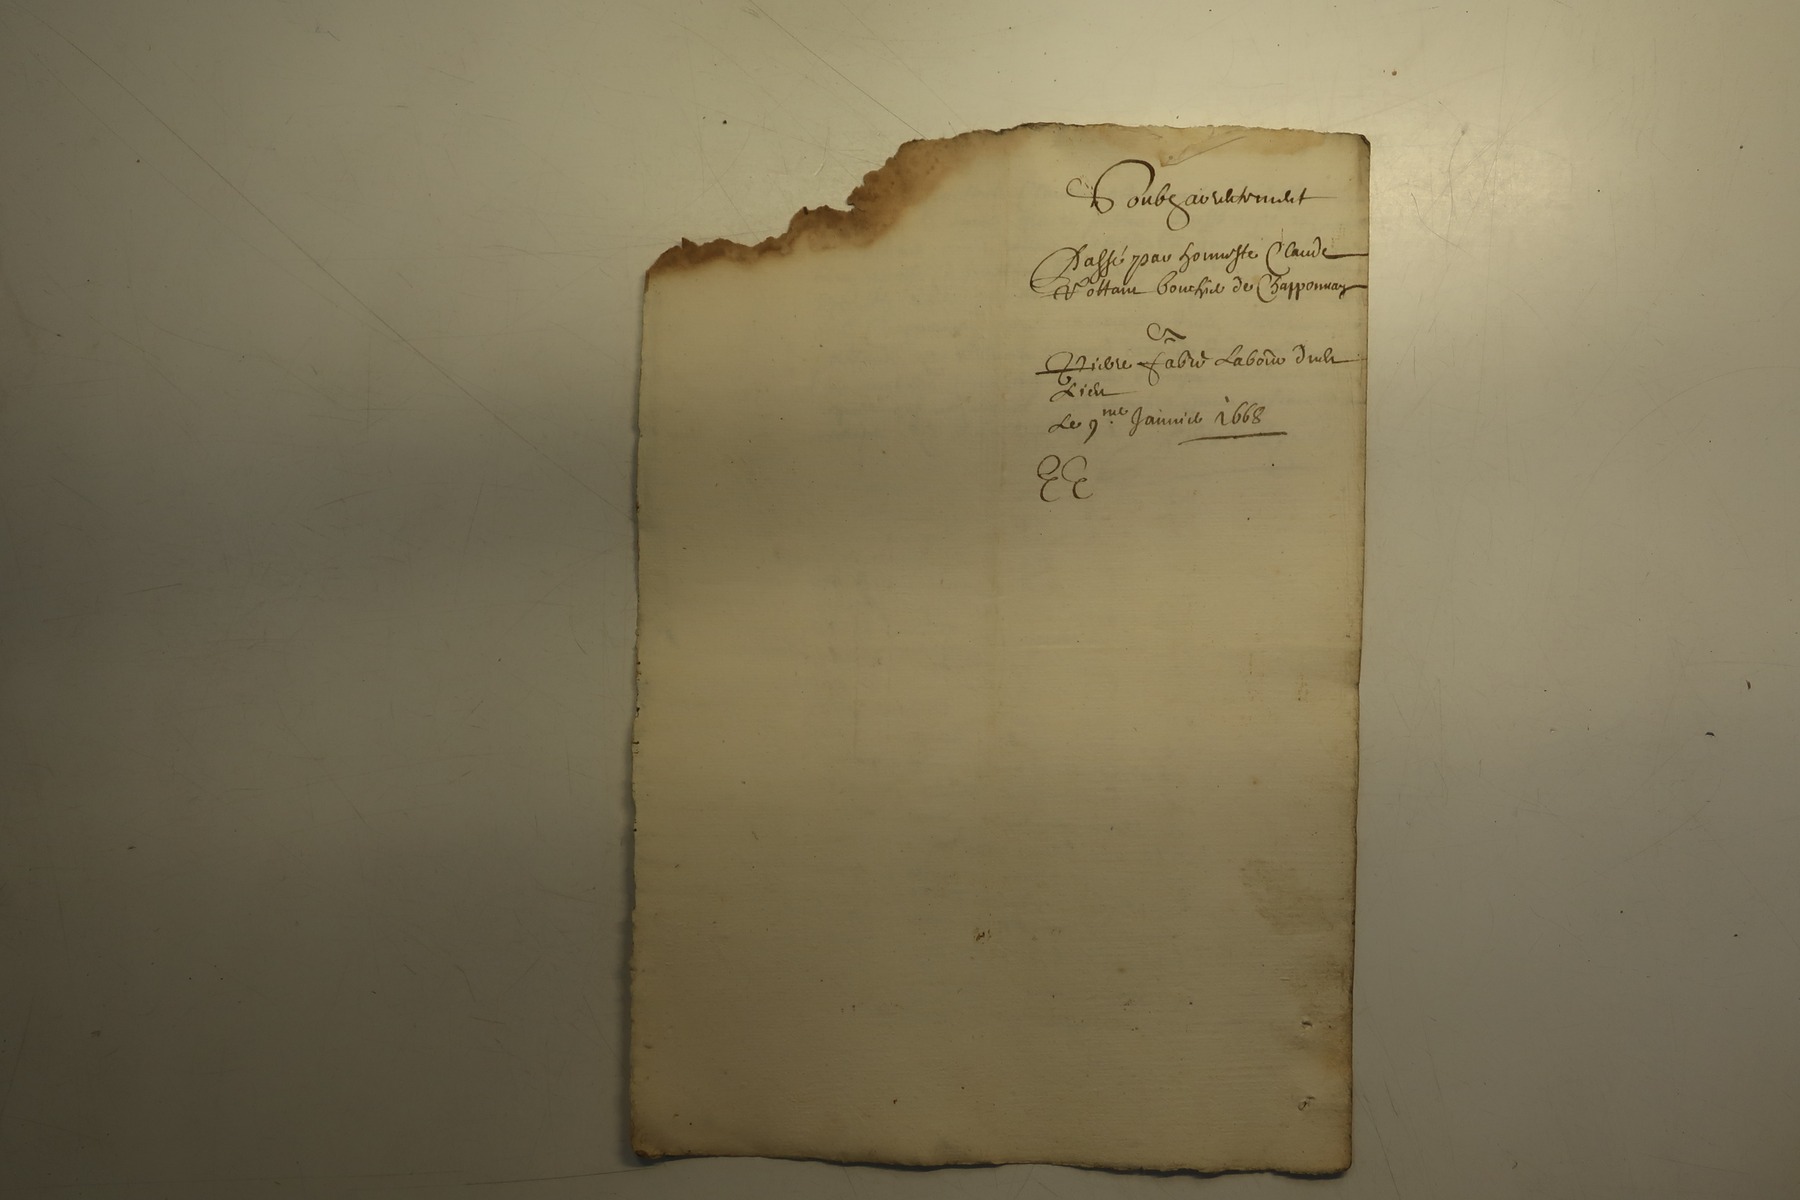 Soubzarrentement
Passé par honneste Claude
Vottam bouchie de Chapponnay
A
Pierre Fabvre Labour dudt
Lieu
Le 9me Janvie 1668